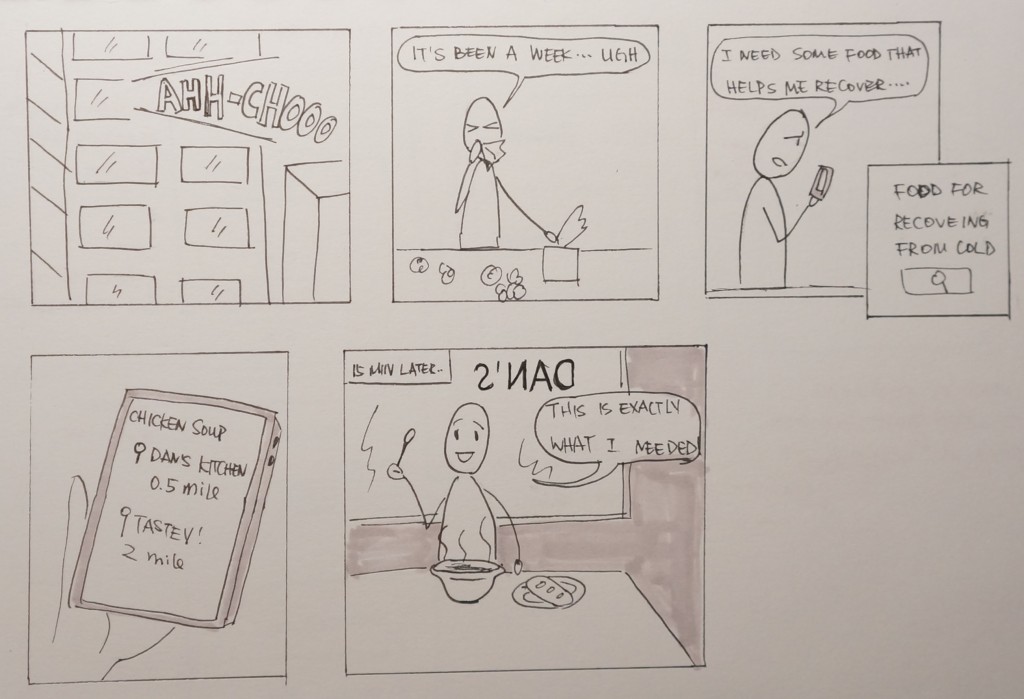 AHH-CHOOO
IT'S BEEN A WEEK... UGH
I NEED SOME FOOD THAT
HELPS ME RECOVER....
FOOD FOR
RECOVEING
FROM COLD
CHICKEN SOUP
DANS KITCHEN
0.5 mile
TASTEV!
2 mile
15 MIN LATER..
DAN'S
THIS IS EXACTLY
WHAT I NEEDED